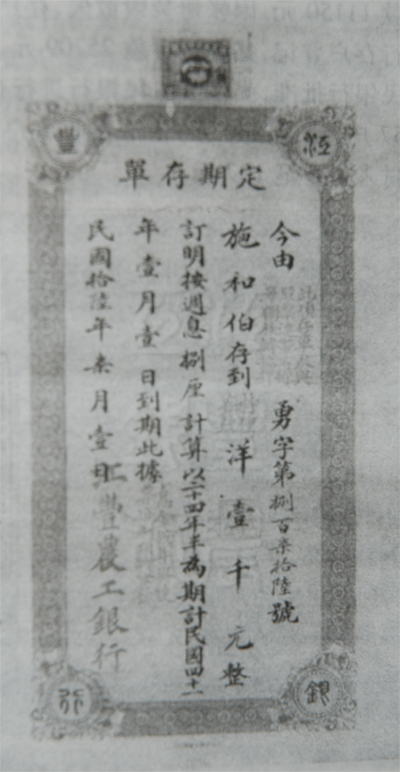 江豐銀行
定期存單
今由 勇字第捌百柒拾陸號
施和伯存到 洋壹千元整
訂明按週息捌厘計算以二十四年半為期計民國四十一
年壹月壹日到期此據
民國拾陸年柒月壹日江豐農工銀行